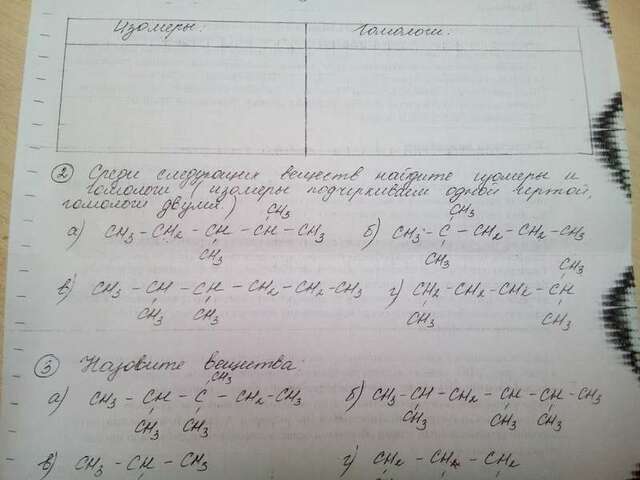 Изомеры: Гомологи:
2 Среди следующих веществ найдите изомеры и
гомологи (изомеры подчеркиваем одной чертой,
гомологи двумя)
CH3 CH3
а) CH3 - CH2 - CH - CH - CH3 б) CH3 - C - CH2 - CH2 - CH3
CH3 CH3
CH3
в) CH3 - CH - CH - CH2 - CH2 - CH3 г) CH2 - CH2 - CH2 - CH
CH3 CH3 CH3 CH3
3 Назовите вещества:
CH3
а) CH3 - CH - C - CH2 - CH3 б) CH3 - CH - CH2 - CH - CH - CH3
CH3 CH3 CH3 CH3 CH3
в) CH3 - CH - CH3 г) CH2 - CH2 - CH2